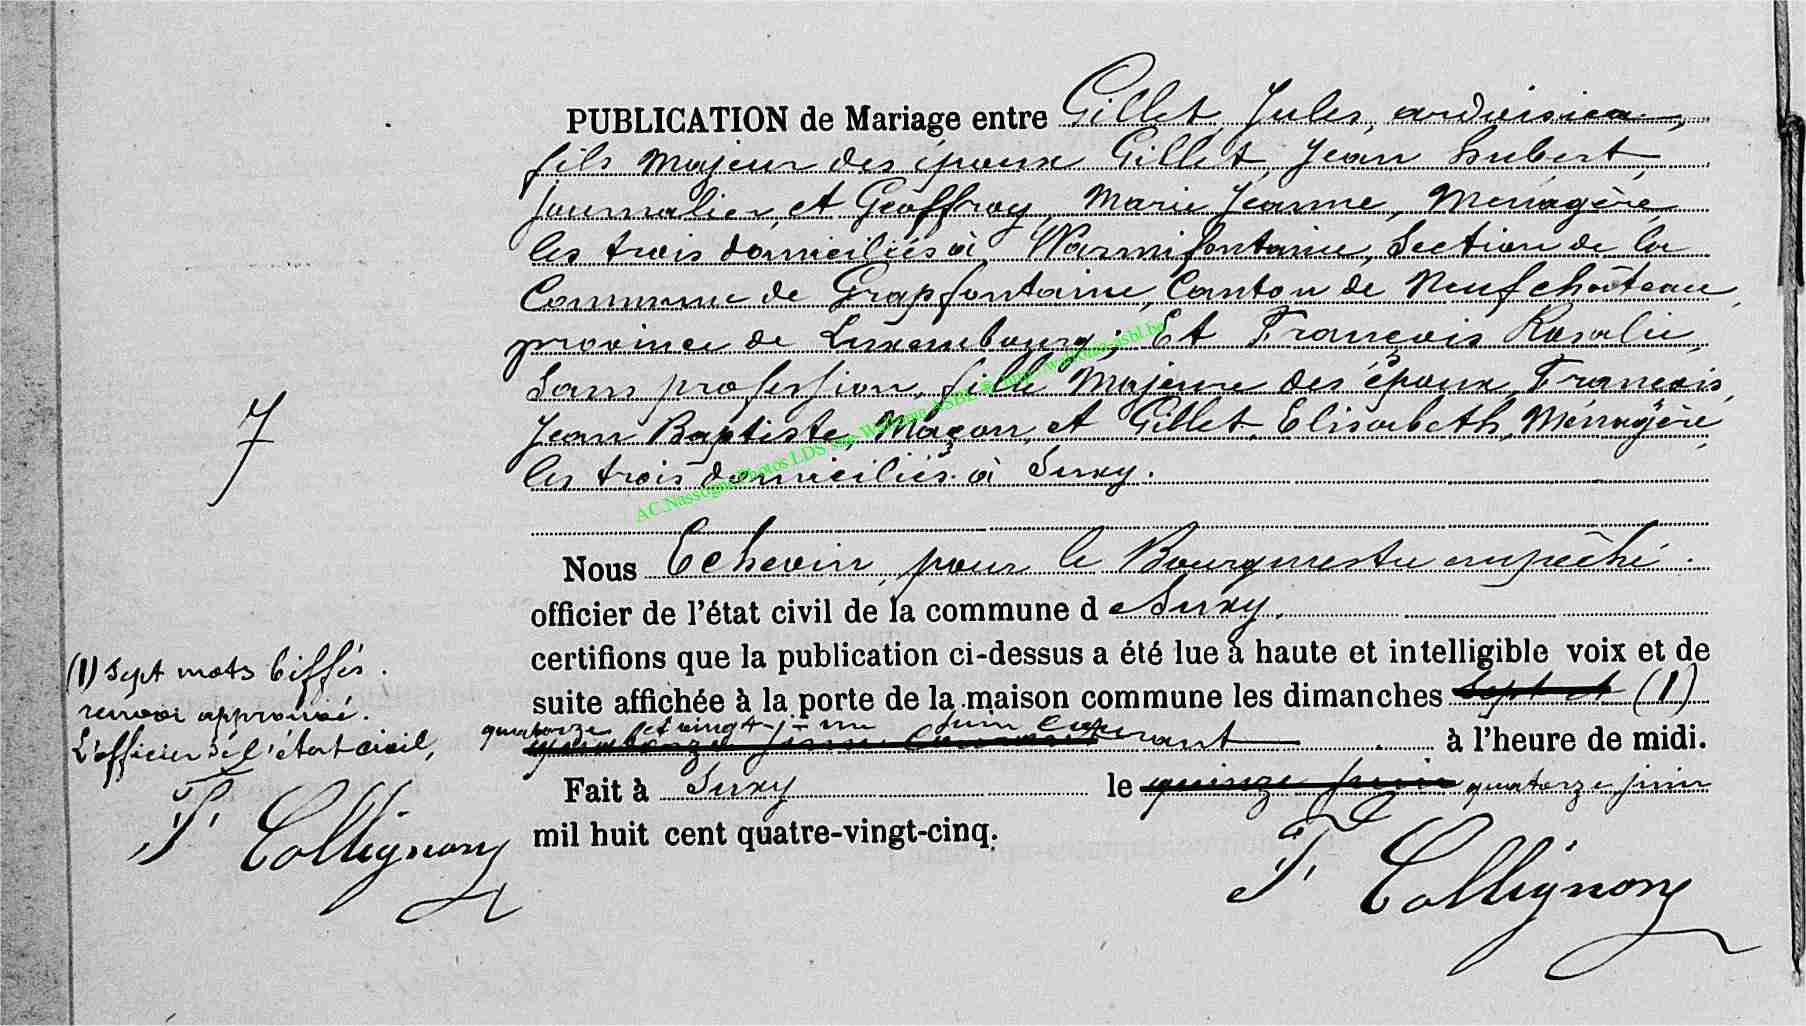 PUBLICATION de Mariage entre Gillet, Jules, ardoisier,
fils majeur des époux Gillet, Jean hubert,
Journalier et Géoffroy, Marie Jeanne, Ménagère,
les trois domiciliés à Warmifontaine, Section de la
Commune de Grapfontaine, Canton de Neufchâteau,
province de Luxembourg; Et François Rosalie,
Sans profession, fille Majeure des époux, François,
Jean Baptiste, Maçon, et Gillet, Elisabeth, Ménagère,
les trois domiciliés à Suxy.
AC.Nassogne Photos LDS
ASBL
Nous Echevin, pour le Bourgmestre empêché.
officier de l'état civil de la commune d e Suxy.
certifions que la publication ci-dessus a été lue à haute et intelligible voix et de
suite affichée à la porte de la maison commune les dimanches Sept et (1)
quatorze et vingt-un juin courant
quatorze juin courant à l'heure de midi.
Fait à Suxy le quinze juin quatorze juin
mil huit cent quatre-vingt-cinq.
F. Collignon
7
(1) Sept mots biffés.
renvoi approuvé.
L'officier de l'état civil,
F. Collignon